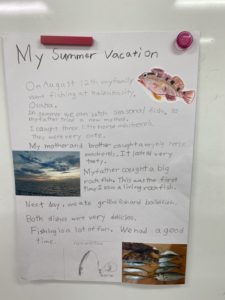 My Summer Vacation
On August 12th my family
went fishing at
Osaka.
In summer we can catch seasonal fish, so
my father tried a new method.
I caught three little horse mackerel.
They were very cute.
My mother and brother caught many horse
mackerels. It looked very
tasty.
My father caught a big
rock fish. This was the first
time I saw a living rockfish.
Next day, we ate grilled fish and boiled fish.
Both dishes were very delicious.
Fishing is a lot of fun. We had a good
time.